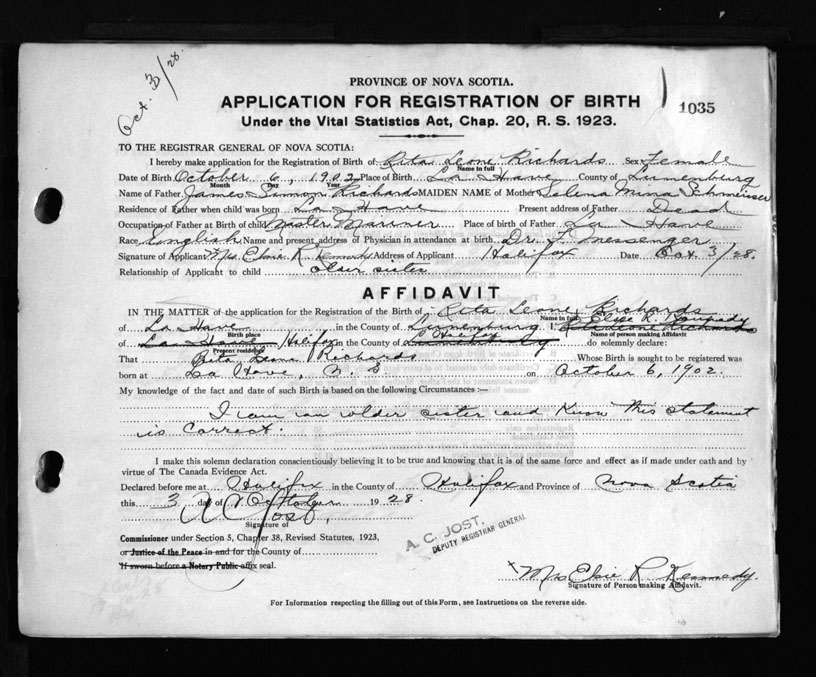 Oct. 3/28.
PROVINCE OF NOVA SCOTIA.
APPLICATION FOR REGISTRATION OF BIRTH
1035
Under the Vital Statistics Act, Chap. 20, R. S. 1923.
TO THE REGISTRAR GENERAL OF NOVA SCOTIA:
I hereby make application for the Registration of Birth of Rita Leone Richards Sex Female
Name in full
Date of Birth October 6, 1902 Place of Birth La Have County of Lunenburg
Month Day Year
Name of Father James Simon Richards MAIDEN NAME of Mother Selena Mina Schmeisser
Residence of Father when child was born La Have Present address of Father Dead
Occupation of Father at Birth of child Master Mariner Place of birth of Father La Have
Race English Name and present address of Physician in attendance at birth Dr. F. Messenger
Signature of Applicant Mrs. Elsie R. Kennedy Address of Applicant Halifax Date Oct 3/28.
Relationship of Applicant to child sister
AFFIDAVIT
IN THE MATTER of the application for the Registration of the Birth of Rita Leone Richards
Name in full
of La Have in the County of Lunenburg I, Elsie R. Kennedy
Birth place Name of person making Affidavit
of La Have Halifax in the County of Halifax Lunenburg do solemnly declare:
Present residence
That Rita Leone Richards Whose Birth is sought to be registered was
born at La Have, N. S. on October 6, 1902.
My knowledge of the fact and date of such Birth is based on the following Circumstances :—
I am an older sister and know this statement
is correct.
I make this solemn declaration conscientiously believing it to be true and knowing that it is of the same force and effect as if made under oath and by
virtue of The Canada Evidence Act.
Declared before me at Halifax in the County of Halifax and Province of Nova Scotia
this 3 day of October 1928.
A C Jost,
Signature of
A. C. JOST,
DEPUTY REGISTRAR GENERAL
Commissioner under Section 5, Chapter 38, Revised Statutes, 1923,
or Justice of the Peace in and for the County of
If sworn before a Notary Public affix seal.
x Mrs Elsie R. Kennedy.
Signature of Person making Affidavit.
For Information respecting the filling out of this Form, see Instructions on the reverse side.